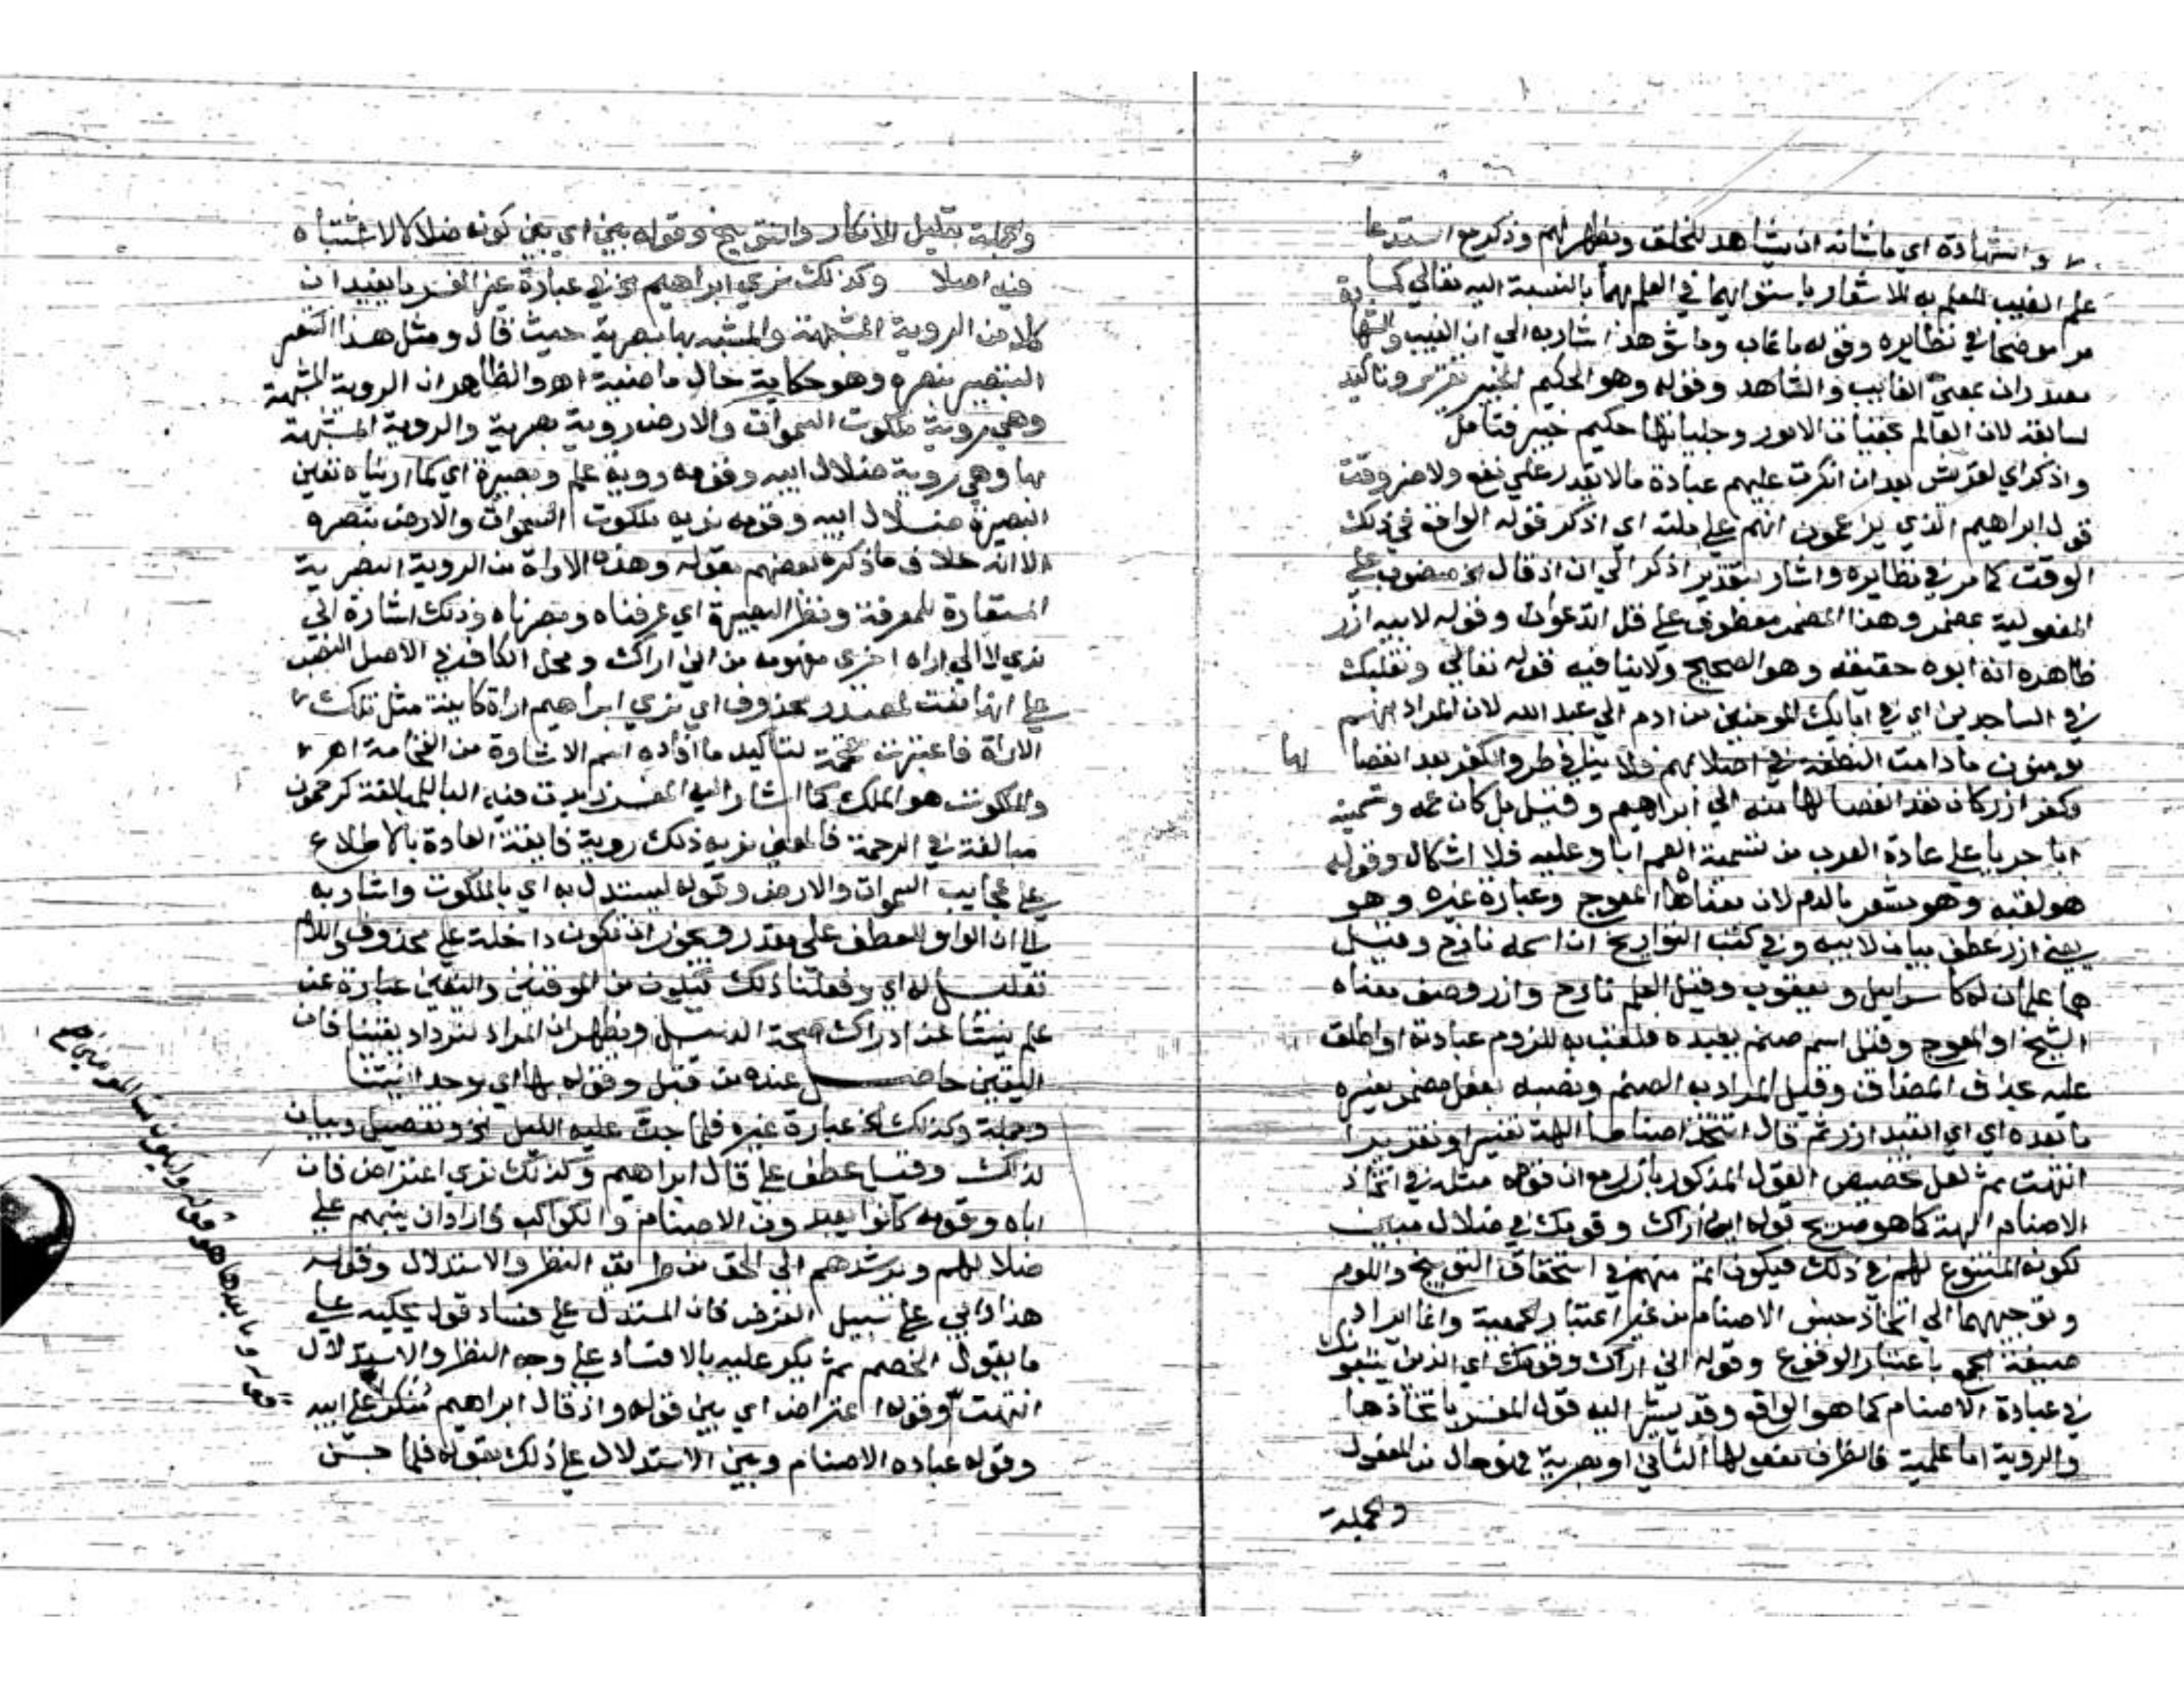 والشهادة اي ما شانه ان يشاهد للخلق ويظهر لهم وذكر مع استدعا
علم الغيب للعلم به للاشعار باستوايهما في العلم بهما بالنسبة اليه تعالي كما
مر موضحا في نظايره وقوله ما غاب وما شوهد اشار به الي ان الغيب والشهادة
مصدران بمعني الغايب والشاهد وقوله وهو الحكيم الخبير تقرير وتاكيد
لسابقه لان العالم بخفيات الامور وجلياتها حكيم خبير فتامل
واذكر اي لقريش بعد ان انكرت عليهم عبادة ما لا يقدر علي نفع ولا ضر وقت
قول ابراهيم الذي يزعمون انهم علي ملته اي اذكر قوله الواقع في ذلك
الوقت كما مر في نظايره واشار بتقدير اذكر الي ان اذ قال الخ منصوب علي
المفعولية بمضمر وهذا المضمر معطوف علي قل اندعوا وقوله لابيه ازر
ظاهره انه ابوه حقيقة وهو الصحيح ولا ينافيه قوله تعالي وتقلبك
في الساجدين اي في ابايك المومنين من ادم الي عبد الله لان المراد انهم
يومنون ما دامت النطفة في اصلابهم فلا ينافي طرو الكفر بعد انفصا لها
وكفر ازر كان بعد انفصالها منه الي ابراهيم وقيل بل كان عمه وتسميته
ابا جريا علي عادة العرب من تسمية العم ابا وعليه فلا اشكال وقوله
هو لقبه وهو يشعر بالذم لان معناه المعوج وعبارة غيره وهو
يعني ازر عطف بيان لابيه وفي كتب التواريخ ان اسمه تارخ وقيل
هما علمان له كاسراييل ويعقوب وقيل العلم تارخ وازر وصف معناه
الشيخ او المعوج وقيل اسم صنم يعبده فلقب به للزوم عبادته او اطلق
عليه بحذف المضاف وقيل المراد به الصنم ونصبه بفعل مضمر يفسره
ما بعده اي اي اتعبد ازر ثم قال اتتخذ اصناما الهة تفسيرا وتقريرا
انتهت ثم لعل تخصيص القول المذكور بازر مع ان قومه مثله في اتخاذ
الاصنام الهة كما هو صريح قوله اني اراك وقومك في ضلال مبين
لكونه المتبوع لهم في ذلك فيكون اتم منهم في استحقاق التوبيخ واللوم
وتوجيههما الي اتخاذ جنس الاصنام من غير اعتبار الجمعية وانما ايراد
صيغة الجمع باعتبار الوقوع وقوله اني اراك وقومك اي الذين يتبعونك
في عبادة الاصنام كما هو الواقع وقد يشير اليه قول المفسر باتخاذها
والروية اما علمية فالظرف مفعولها الثاني او بصرية فهو حال من المفعول
والجملة
والجملة تعليل للانكار والتوبيخ وقوله بين اي بين كونه ضلالا لا اشتباه
فيه اصلا وكذلك نري ابراهيم الخ في عبارة غير المفسر ما يفيد ان
كلا من الروية المشبهة والمشبه بها بصرية حيث قال ومثل هذا التبصير
التبصير نبصره وهو حكاية حال ماضية اهـ والظاهر ان الروية المشبهة
وهي روية ملكوت السموات والارض روية بصرية والروية المشبهة
بها وهي روية ضلال ابيه وقومه روية علم وبصيرة اي كما اريناه بعين
البصيرة ضلال ابيه وقومه نريه ملكوت السموات والارض ببصره
الا انه خلاف ما ذكره بعضهم بقوله وهذه الاراة من الروية البصرية
المستعارة للمعرفة ونظر البصيرة اي عرفناه وبصرناه وذلك اشارة الي
نري لا الي اراه اخري مفهومه من اني اراك ومحل الكاف في الاصل النصب
علي انها نعت لمصدر محذوف اي نري ابراهيم اراة كاينة مثل تلك
الاراة فاعتبرت مقحمة لتاكيد ما افاده اسم الاشارة من الفخامة اهـ
والملكوت هو الملك كما اشار اليه المفسر زيدت فيه التا للمبالغة كرحموت
مبالغة في الرحمة فالمعني نريه ذلك روية فايقة العادة بالاطلاع
علي عجايب السموات والارض وقوله ليستدل به اي بالملكوت واشار به
الي ان الواو للعطف علي مقدر ويجوز ان تكون داخلة علي محذوف واللام
تعليل له اي وفعلنا ذلك ليكون من الموقنين واليقين عبارة عن
علم ينشا عن ادراك صحة الدليل ويظهر ان المراد ليزداد يقينا فان
اليقين حاصل عنده من قبل وقوله بها اي بوحدانيتنا
وجملة وكذلك الخ عبارة غيره فلما جن عليه الليل الخ وتفصيل وبيان
لذلك وقيل عطف علي قال ابراهيم وكذلك نري اعتراض فان
اباه وقومه كانوا يعبدون الاصنام والكواكب فاراد ان ينبههم علي
ضلالهم ويرشدهم الي الحق من طريق النظر والاستدلال وقوله
هذا ربي علي سبيل الفرض فان المستدل علي فساد قول يحكيه علي
ما يقول الخصم ثم يكر عليه بالافساد علي وجه النظر والاستدلال
انتهت وقوله اعتراض اي بين قوله واذ قال ابراهيم منكرا علي ابيه
وقومه عباده الاصنام وبين الاستدلال علي ذلك بقوله فلما جن